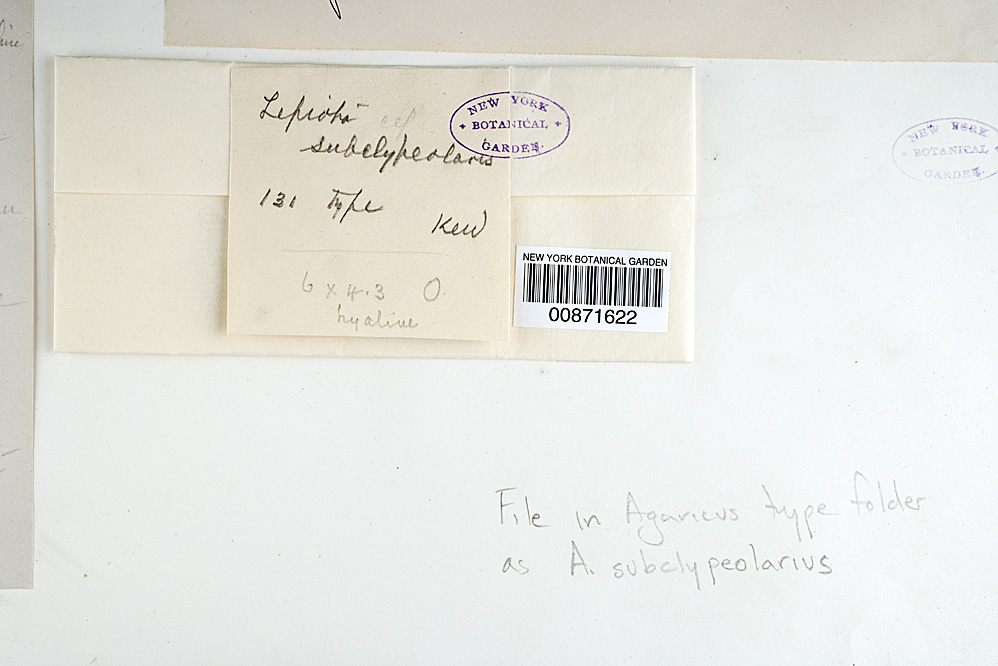 Lepiota
subclypeolaris
NEW YORK
BOTANICAL
GARDEN
131 Type
Kew
6 x 4.3 O
hyaline
NEW YORK BOTANICAL GARDEN
00871622
NEW YORK
BOTANICAL
GARDEN
File in Agaricus type folder
as A. subclypeolarius